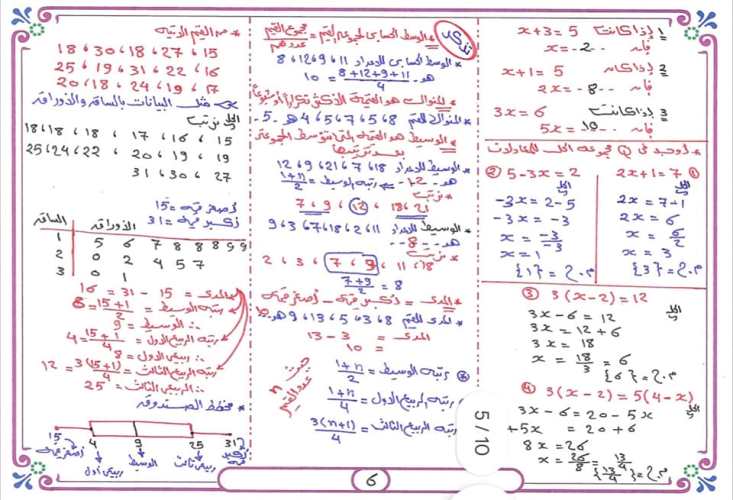 1 إذا كانت x+3=5
فإن x=-2-
2 إذا كان x+1=5
فإن 2x=-8-
3 إذا كانت 3x=6
فإن 5x=10
* أوجد فى Q مجموعة الحل للمعادلات
① 2x+1=7
الحل
2x=7-1
2x=6
x=6/2
x=3
م.ح={3}
② 5-3x=2
الحل
-3x=2-5
-3x=-3
x=-3/-3
x=1
م.ح={1}
③ 3(x-2)=12
الحل
3x-6=12
3x=12+6
3x=18
x=18/3=6
م.ح={6}
④ 3(x-2)=5(4-x)
الحل
3x-6=20-5x
+5x =20+6
8x=26
x=26/8=13/4
م.ح={13/4}
5/10
تذكر
* الوسط الحسابى لمجموعة القيم = مجموع القيم / عددهم
* الوسط الحسابى للأعداد 11، 9، 12، 8
هو 8+12+9+11/4 = 10
* المنوال هو القيمة الأكثر تكراراً أو شيوعاً
* المنوال للقيم 4،5،6،7،5،6،8 هو -5-
* الوسيط هو القيمة التى تتوسط المجموعة
بعد ترتيبها
* الوسيط للأعداد 12، 9، 21، 7، 18
هو -12- رتبة الوسيط = n+1/2
ترتيب
7، 9، 12، 18، 21
الوسيط للأعداد 9،3،7،18،2،11
هو -8-
ترتيب
2، 3، 7، 9، 11، 18
7+9/2 = 8
* المدى = أكبر قيمة - أصغر قيمة
* المدى للقيم 9،13،5،3،8 هو 10
المدى = 13 - 3
= 10
رتبة الوسيط = n+1/2
رتبة الربيع الأول = n+1/4
رتبة الربيع الثالث = 3(n+1)/4
حيث n عدد القيم
* من القيم الآتية
15، 27، 18، 30، 18
16، 22، 31، 19، 25
17، 19، 24، 18، 20
مثل البيانات بالساق والأوراق
الحل نرتب
15، 16، 17، 18، 18، 18
19، 19، 20، 22، 24، 25
27، 30، 31
أصغر قيمة = 15
أكبر قيمة = 31
الساق الأوراق
1 5 6 7 8 8 8 9 9
2 0 2 4 5 7
3 0 1
* المدى = 31 - 15 = 16
* رتبة الوسيط = 15+1/2 = 8
∴ الوسيط = 9
* رتبة الربيع الأول = 15+1/4 = 4
∴ ربيعى الأول = 8
* رتبة الربيع الثالث = 3(15+1)/4 = 12
∴ الربيع الثالث = 25
* مخطط الصندوق
15 4 9 25 31
أصغر قيمة ربيعى أول الوسيط ربيعى ثالث أكبر قيمة
6